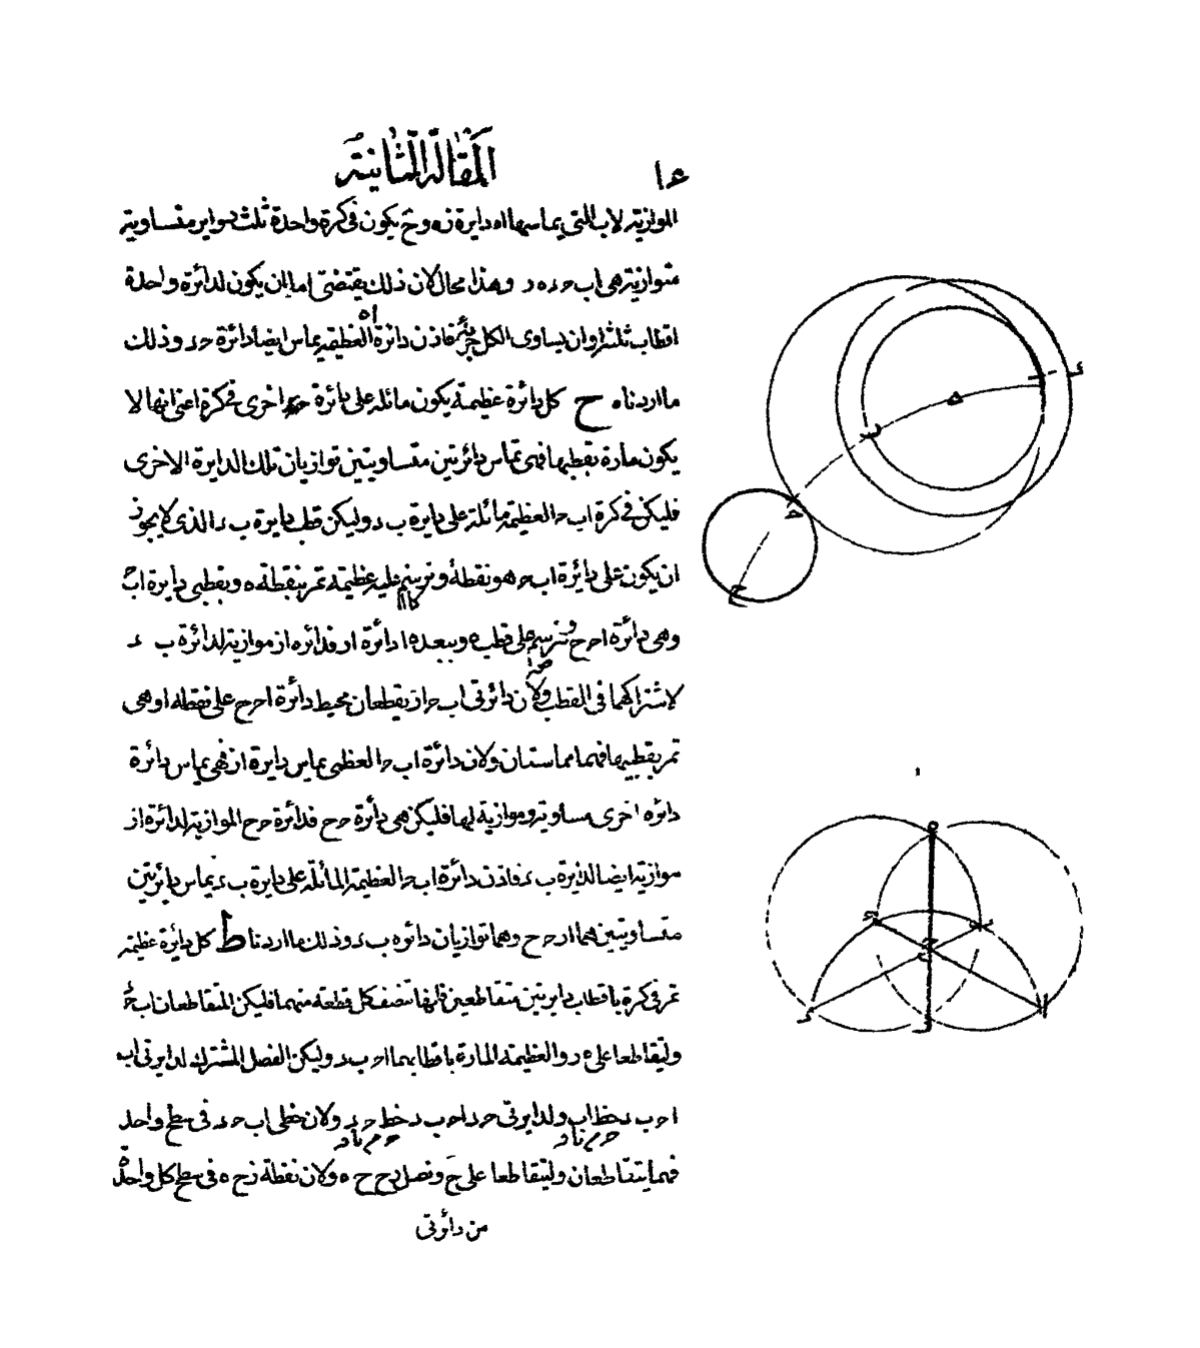 المقالة الثانية
١٤
الموازية لاب التى يماسها اه دايرة زه وح يكون فى كرة واحدة ثلث دواير متساوية
متوازية هى اب حد ه ر وهذا محال لان ذلك يقتضى اما ان يكون لدائرة واحدة
اقطاب ثلثة او ان يساوى الكل جزئه فاذن دائرة اه العظيمة يماس ايضا دائرة حد وذلك
ما اردناه ح كل دائرة عظيمة يكون مائلة على دائرة اخرى فى كرة اعنى انها لا
يكون مارة بقطبها فهى تماس دائرتين متساويتين توازيان تلك الدايرة الاخرى
فليكن فى كرة اب ح العظيمة مائلة على دايرة ب د وليكن قطب دايرة ب د الذى لا يجوز
ان يكون على دايرة اب ح هو نقطة ه ونرسم عليه عظيمة تمر بنقطة ه وبقطبى دايرة اب ح
وهى دائرة ا ح ونرسم على قطب ه وببعد ه ا دائرة از فدائرة از موازية لدائرة ب د
لاشتراكهما فى القطب ولان دائرتى اب ح از يقطعان محيط دائرة ا ح على نقطة ا وهى
تمر بقطبيهما فهما مماستان ولان دائرة اب ح العظمى يماس دايرة از فهى يماس دائرة
دائرة اخرى مساوية وموازية لها فليكن هى دائرة ح ح فدائرة ح ح الموازية لدائرة از
موازية ايضا لدايرة ب د فاذن دائرة اب ح العظيمة المائلة على دايرة ب د يماس دايرتين
متساويتين هما از ح ح وهما توازيان دائرة ب د وذلك ما اردنا ط كل دائرة عظيمة
تمر فى كرة باقطاب دايرتين متقاطعين فانها تنصف كل قطعة منهما فليكن المتقاطعان اب ح د
وليتقاطعا على ه ز والعظيمة المارة باقطابهما ا ح ب د وليكن الفصل المشترك لدايرتى اب
ا ح ب د خط اب ولدايرتى ح د ا ح ب د خط ح د ولان خطى اب ح د فى سطح واحد
فهما يتقاطعان وليتقاطعا على ح ونصل ز ح ح ه ولان نقطة ز ح ه فى سطح كل واحدة
من دائرتى